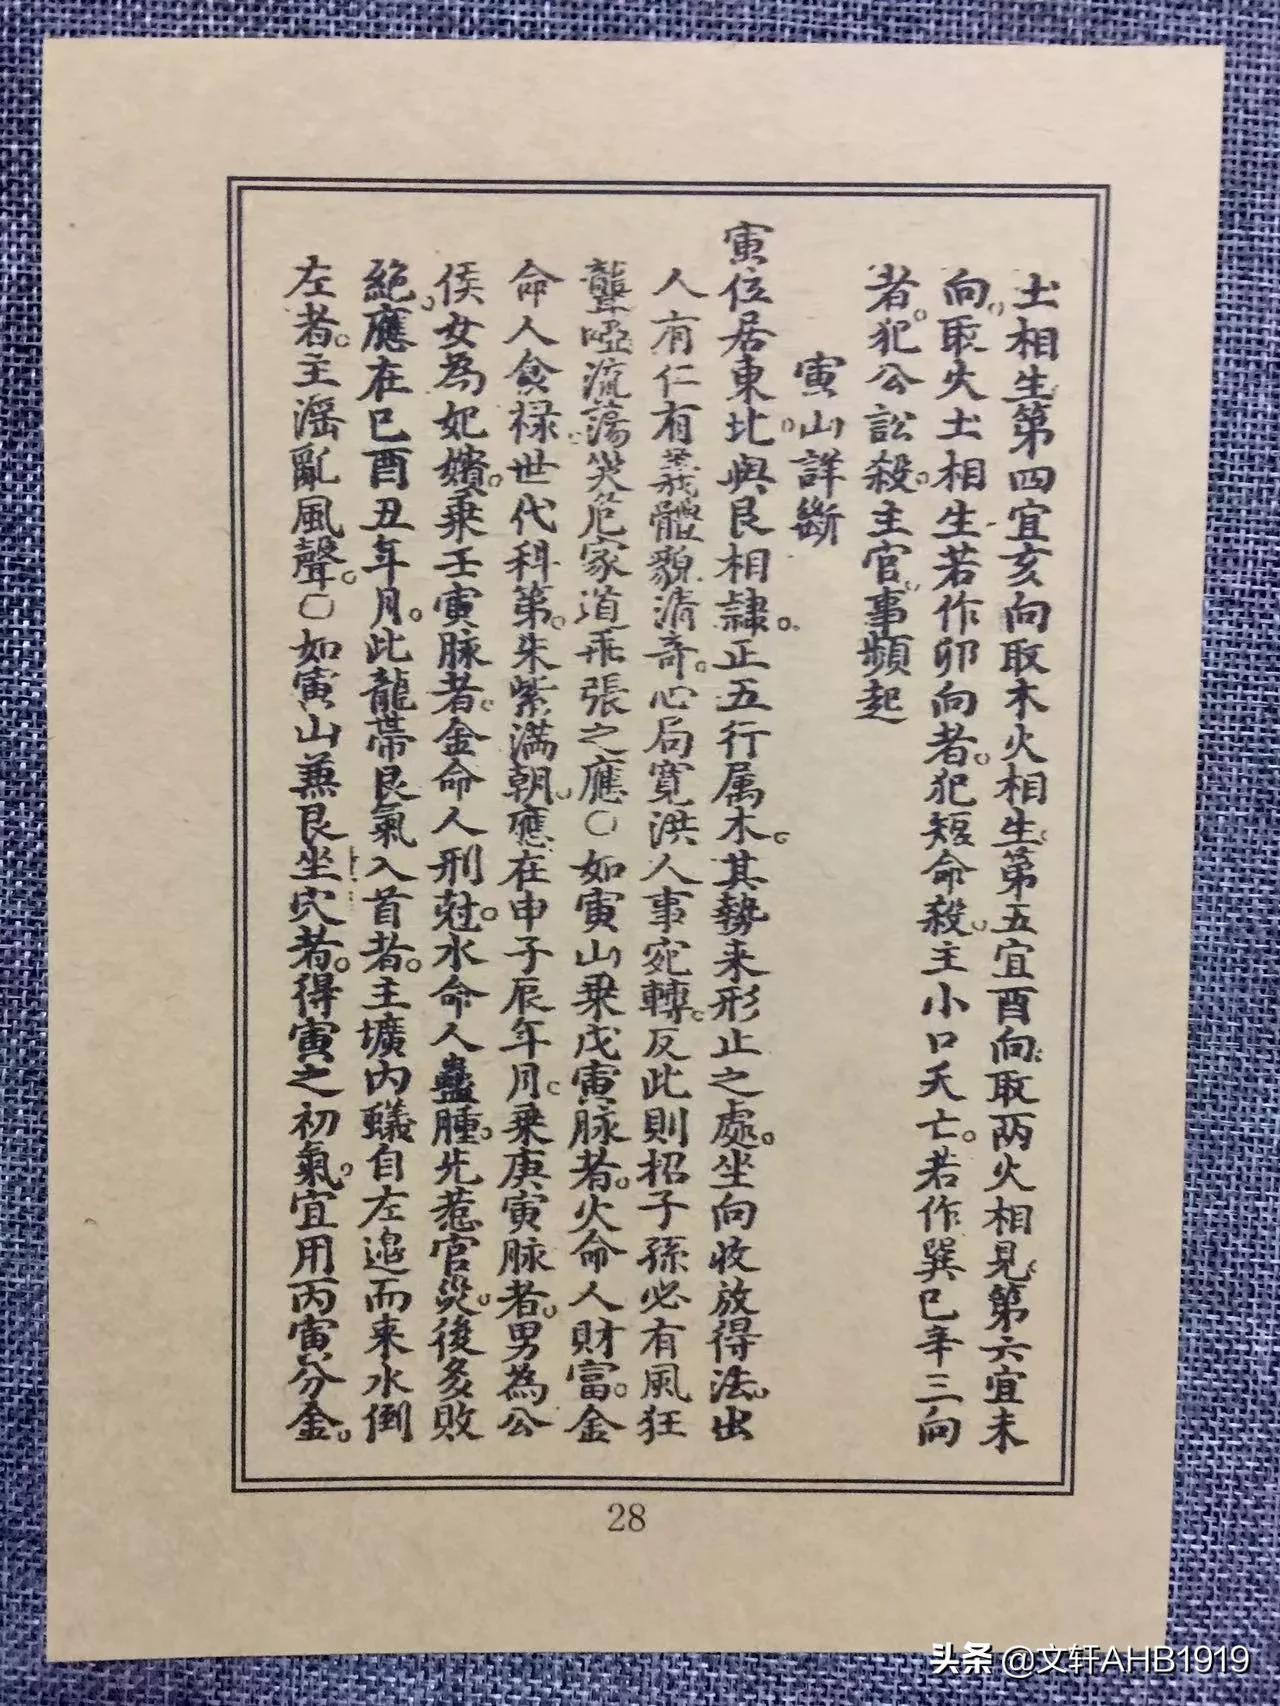 土相生。第四宜亥向取木火相生。第五宜酉向。取两火相見。第六宜未
向。取火土相生若作卯向者。犯短命殺。主小口夭亡。若作巽巳辛三向
者。犯公訟殺。主官事頻起
寅山詳斷
寅位居東北。與艮相隷。正五行属木。其勢来形止之處。坐向收放得法。出
人有仁有義體貌清奇。心局寬洪人事宛轉。反此則招子孫必有風狂
聾啞流蕩。災危家道乖張之應〇如寅山乗戊寅脉者。火命人財富。金
命人食禄。世代科第。朱紫滿朝。應在申子辰年月。乗庚寅脈者。男為公
侯女為妃嬪。乗壬寅脉者。金命人刑尅。水命人蠱腫。先惹官災。後多敗
絕。應在巳酉丑年月。此龍帶艮氣入首者。主壙內蟻自左邉而来水倒
左者。主滛亂風聲。〇如寅山兼艮坐穴者。得寅之初氣。宜用丙寅分金。
28
头条 @文轩AHB1919